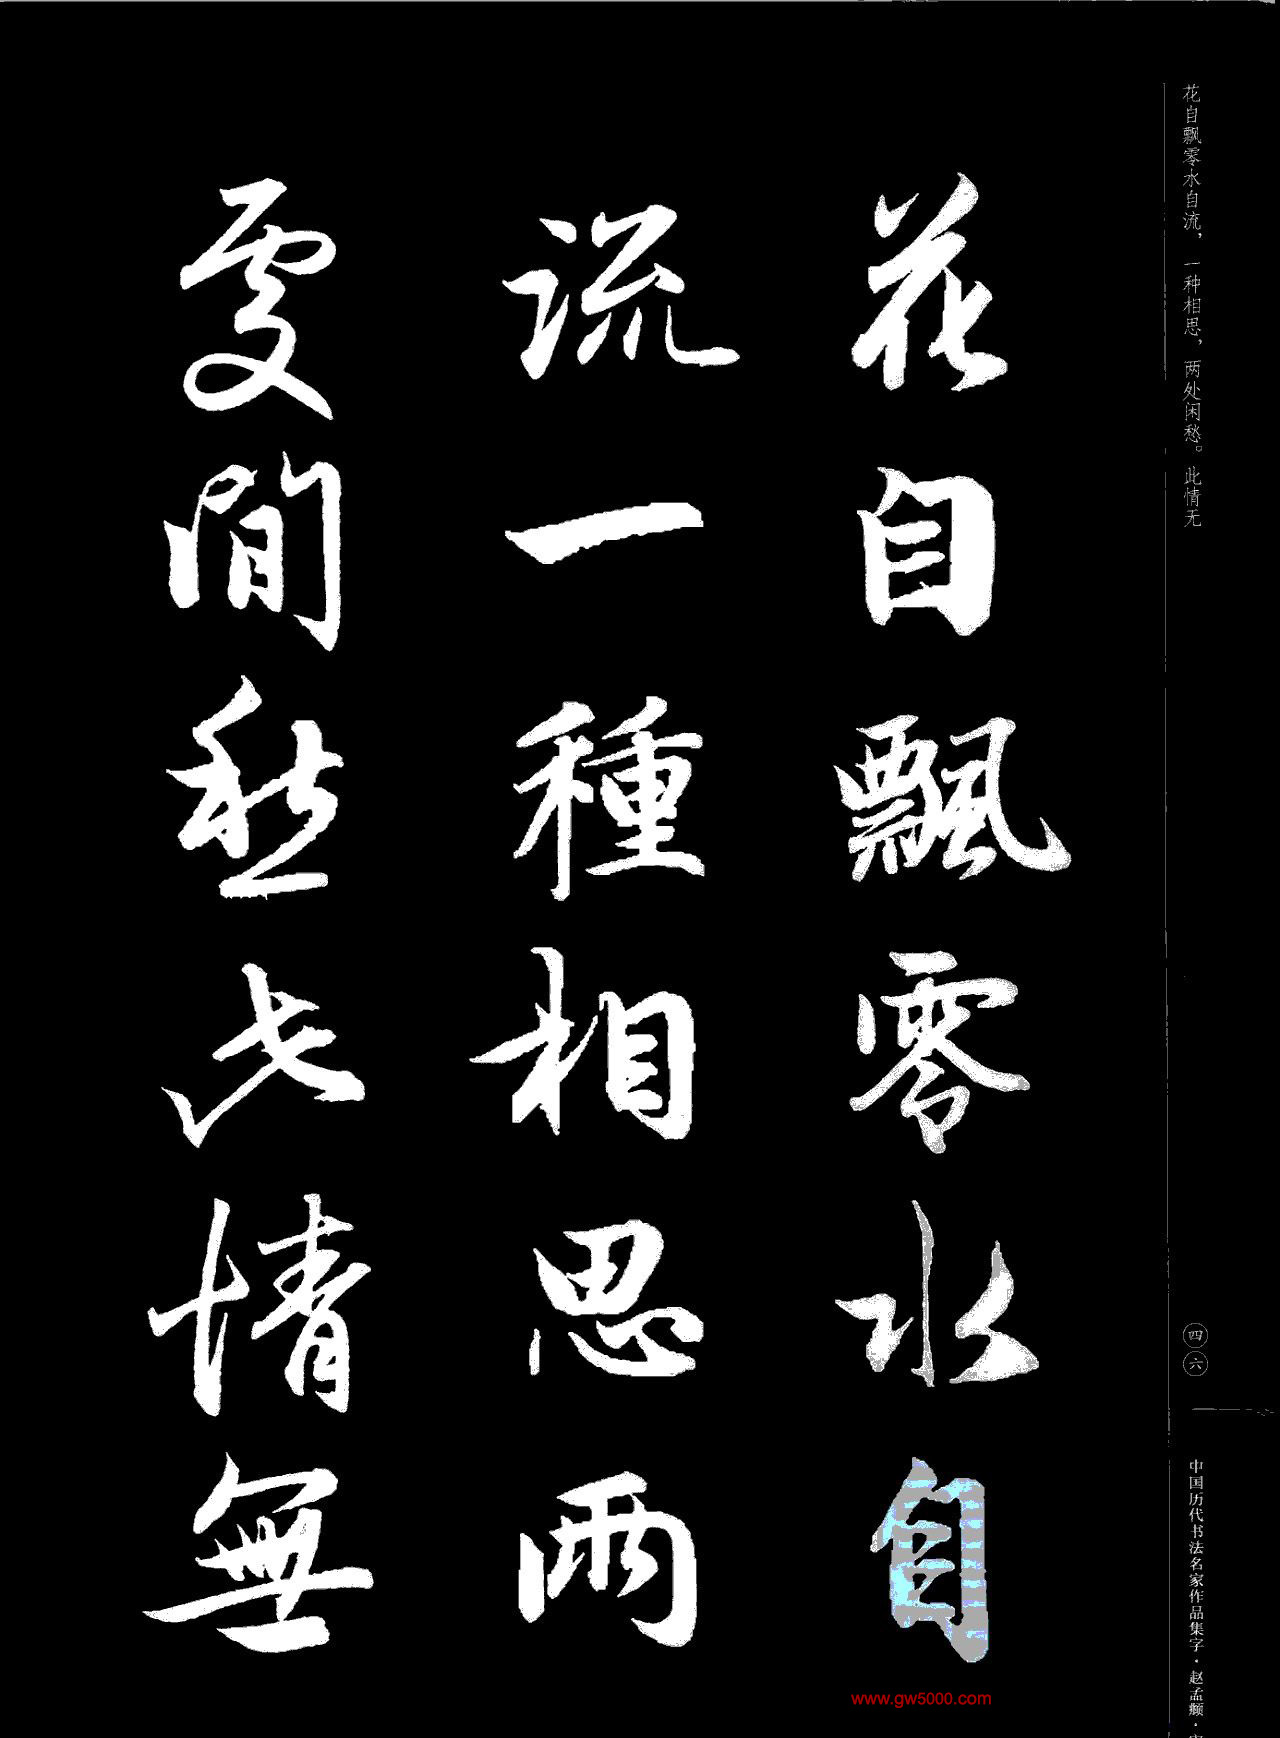 花自飄零水自
流一種相思兩
處閒愁此情無
花自飘零水自流，一种相思，两处闲愁。此情无
四六
中国历代书法名家作品集字·赵孟頫·
www.gw5000.com